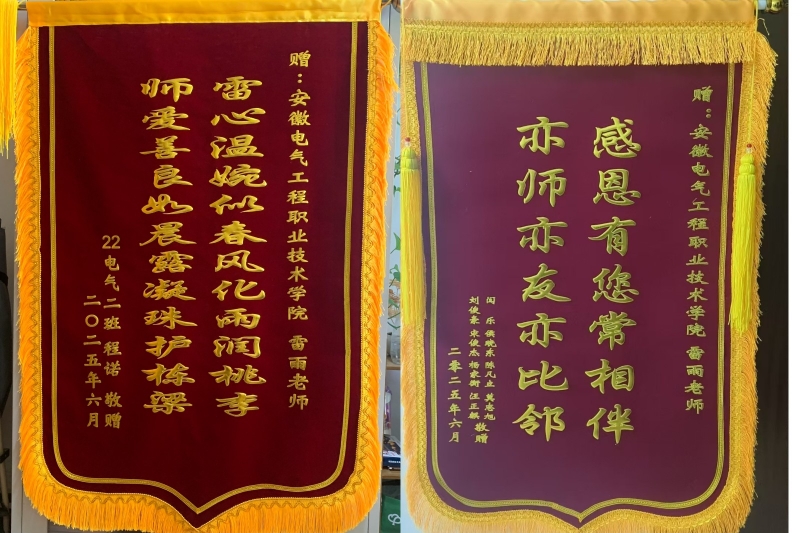 赠：安徽电气工程职业技术学院 雷雨老师
雷心温婉似春风化雨润桃李
师爱善良如晨露凝珠护栋梁
22电气二班 程诺 敬赠
二〇二五年六月
赠：安徽电气工程职业技术学院 雷雨老师
感恩有您常相伴
亦师亦友亦比邻
敬赠
二零二五年六月